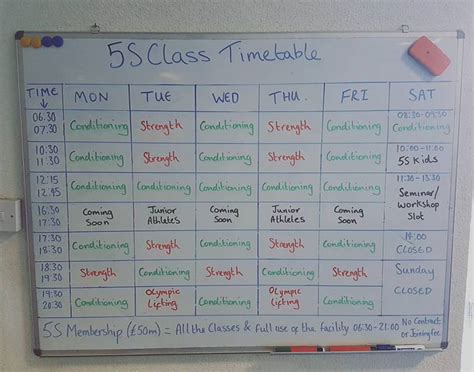 5S Class Timetable
TIME MON TUE WED THU FRI SAT
06:30 08:30-09:30
07:30 Conditioning Strength Conditioning Strength Conditioning Conditioning
10:30 10:00-11:00
11:30 Conditioning Strength Conditioning Strength Conditioning 5S Kids
12:15 11:30-13:30
12:45 Conditioning Conditioning Conditioning Conditioning Conditioning Seminar/
16:30 Coming Junior Coming Junior Coming Workshop
17:30 Soon Athletes Soon Athletes Soon Slot
17:30 14:00
18:30 Conditioning Strength Conditioning Strength Conditioning CLOSED
18:30 Sunday
19:30 Strength Conditioning Strength Conditioning Strength
19:30 Olympic Olympic CLOSED
20:30 Conditioning Lifting Conditioning Lifting Conditioning
5S Membership (£50m) = All the Classes & Full use of the facility 06:30-21:00 No Contract
or Joining fee